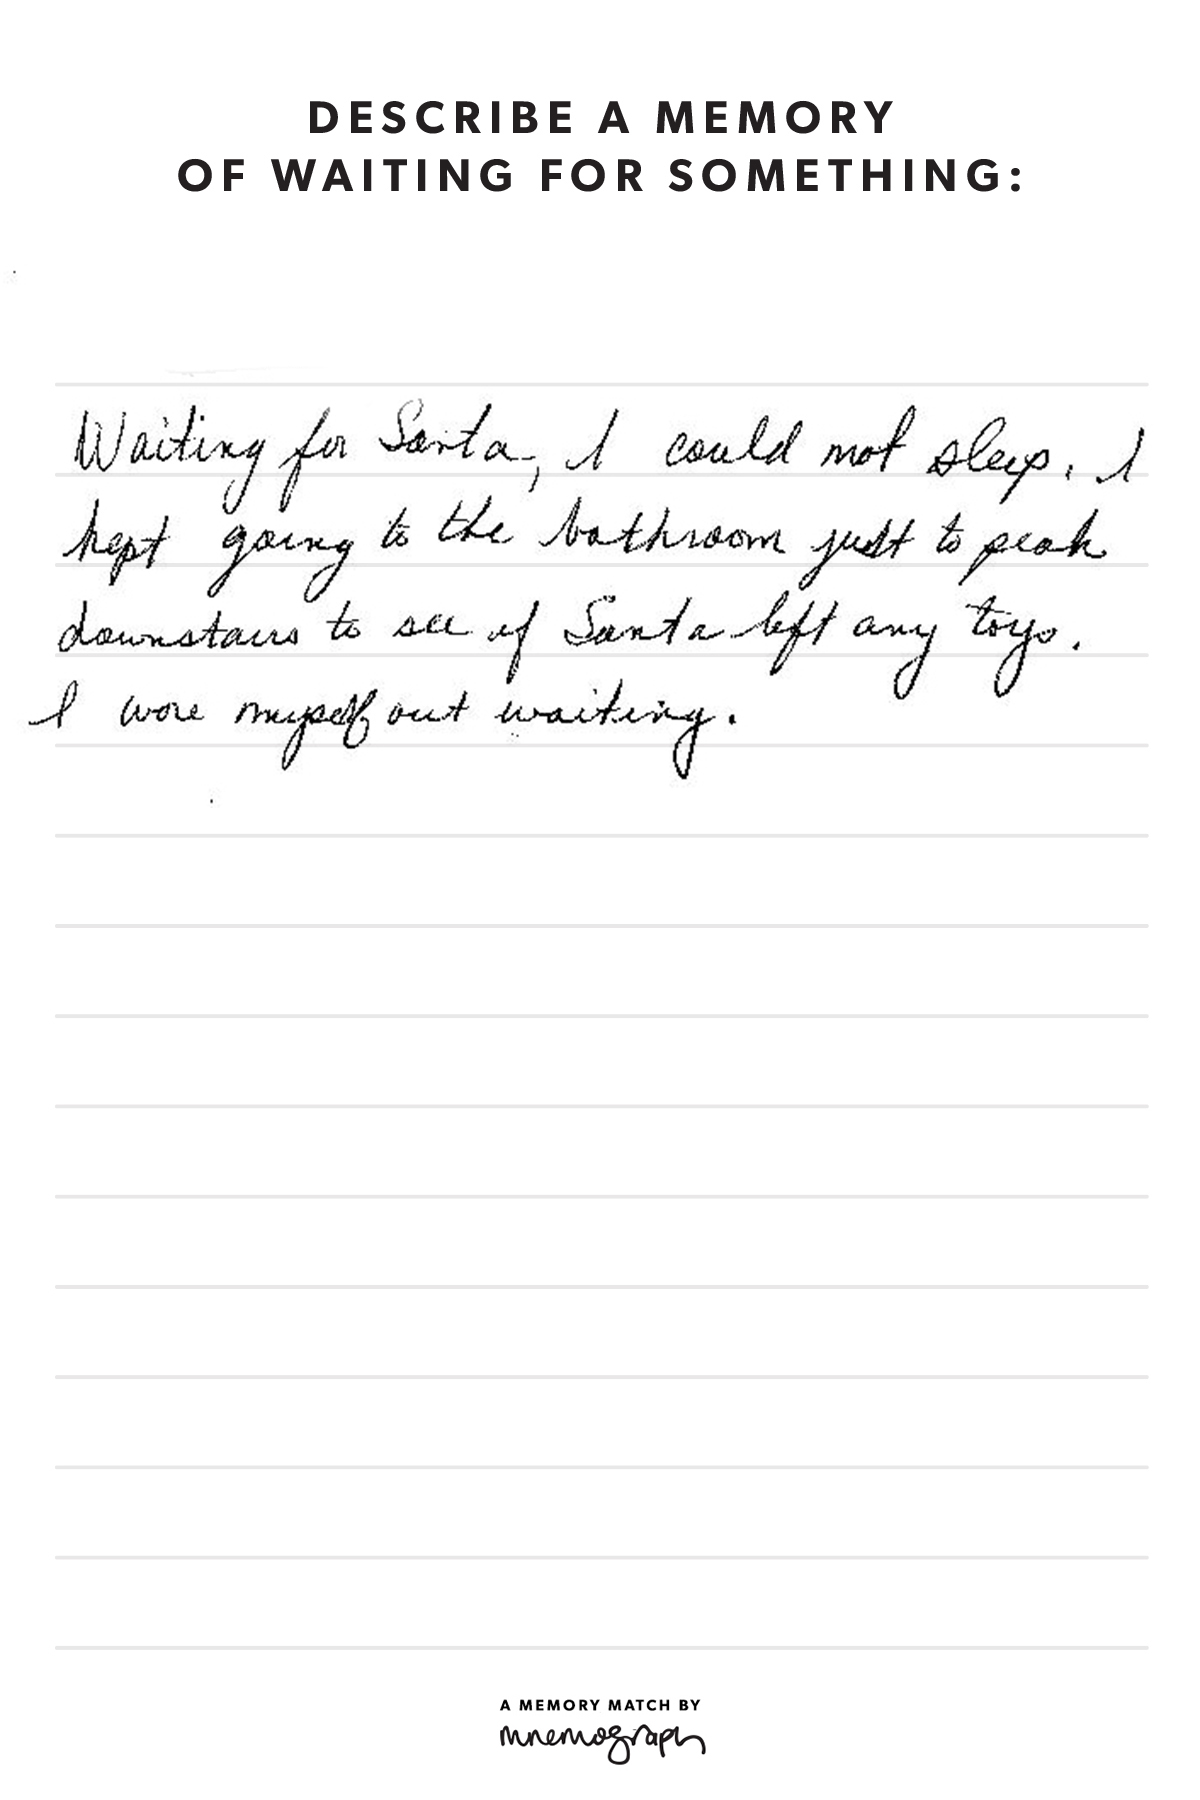 DESCRIBE A MEMORY
OF WAITING FOR SOMETHING:
Waiting for Santa, I could not sleep. I
kept going to the bathroom just to peak
downstairs to see if Santa left any toys.
I wore myself out waiting.
A MEMORY MATCH BY
mnemograph